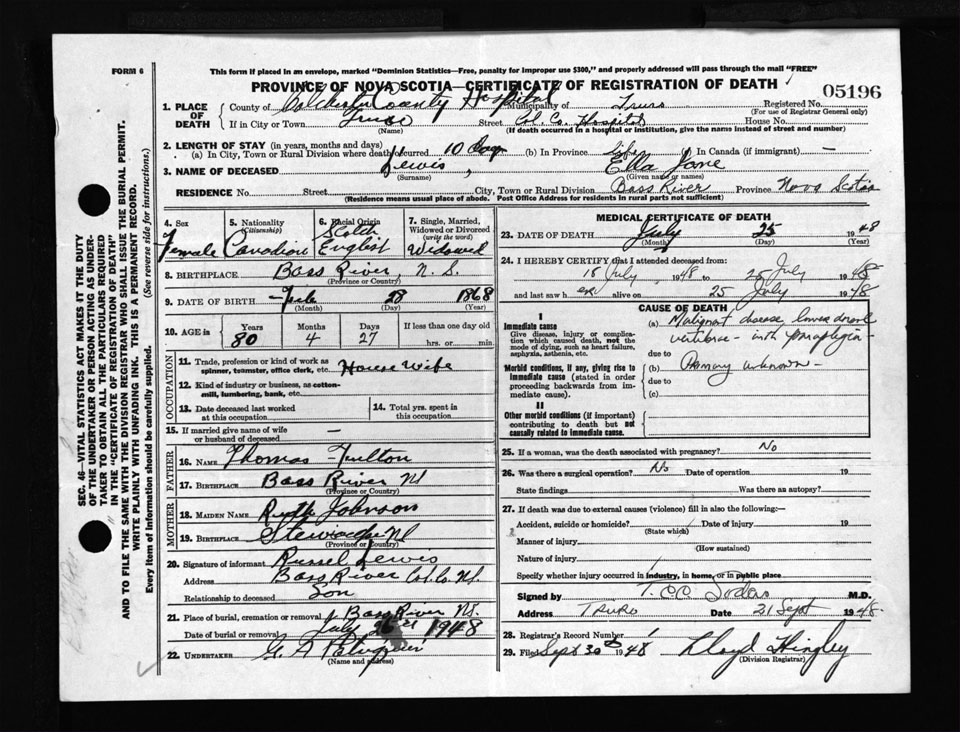 FORM 6
This form if placed in an envelope, marked "Dominion Statistics—Free, penalty for improper use $300," and properly addressed will pass through the mail "FREE"
PROVINCE OF NOVA SCOTIA—CERTIFICATE OF REGISTRATION OF DEATH
05196
1. PLACE OF DEATH County of Colchester County Hospital Municipality of Truro Registered No.
(For use of Registrar General only)
If in City or Town Truro Street Col. Co. Hospital House No.
(Name) (If death occurred in a hospital or institution, give the name instead of street and number)
2. LENGTH OF STAY (in years, months and days)
(a) In City, Town or Rural Division where death occurred 10 days (b) In Province life (c) In Canada (if immigrant) —
3. NAME OF DECEASED Lewis, Ella Jane
(Surname) (Given name or names)
RESIDENCE No. Street City, Town or Rural Division Bass River Province Nova Scotia
(Residence means usual place of abode. Post Office Address for residents in rural parts not sufficient)
4. Sex Female
5. Nationality (Citizenship) Canadian
6. Racial Origin Scotch English
7. Single, Married, Widowed or Divorced (write the word) Widowed
8. BIRTHPLACE Bass River, N. S.
(Province or Country)
9. DATE OF BIRTH — Feb 28 1868
(Month) (Day) (Year)
10. AGE in Years 80 Months 4 Days 27 If less than one day old hrs. or min.
OCCUPATION
11. Trade, profession or kind of work as spinner, teamster, office clerk, etc. House Wife
12. Kind of industry or business, as cotton-mill, lumbering, bank, etc.
13. Date deceased last worked at this occupation
14. Total yrs. spent in this occupation
15. If married give name of wife or husband of deceased —
FATHER
16. NAME Thomas Fulton
17. BIRTHPLACE Bass River NS
(Province or Country)
MOTHER
18. MAIDEN NAME Ruth Johnson
19. BIRTHPLACE Stewiacke NS
(Province or Country)
20. Signature of informant Russel Lewis
Address Bass River Col. Co. NS.
Relationship to deceased Son
21. Place of burial, cremation or removal Bass River NS.
Date of burial or removal July 26 1948
22. UNDERTAKER G. A
(Name and address)
MEDICAL CERTIFICATE OF DEATH
23. DATE OF DEATH July 25 1948
(Month) (Day) (Year)
24. I HEREBY CERTIFY that I attended deceased from:
15 July 1948 to 25 July 1948
and last saw her alive on 25 July 1948
CAUSE OF DEATH
I
Immediate cause
Give disease, injury or complication which caused death, not the mode of dying, such as heart failure, asphyxia, asthenia, etc.
(a) Malignant disease lower dorsal vertebrae - with paraplegia -
due to
Morbid conditions, if any, giving rise to immediate cause (stated in order proceeding backwards from immediate cause).
(b) Primary unknown -
due to
(c)
II
Other morbid conditions (if important) contributing to death but not causally related to immediate cause.
25. If a woman, was the death associated with pregnancy? No
26. Was there a surgical operation? No Date of operation 19
State findings Was there an autopsy?
27. If death was due to external causes (violence) fill in also the following:—
Accident, suicide or homicide? Date of injury 19
(State which)
Manner of injury
(How sustained)
Nature of injury
Specify whether injury occurred in industry, in home, or in public place
Signed by M.D.
Address TRURO Date 21 Sept 1948.
28. Registrar's Record Number 1
29. Filed Sept 30 1948 Lloyd Hingley
(Division Registrar)
SEC. 46—VITAL STATISTICS ACT MAKES IT THE DUTY
OF THE UNDERTAKER OR PERSON ACTING AS UNDER-
TAKER TO OBTAIN ALL THE PARTICULARS REQUIRED
IN THE "CERTIFICATE OF REGISTRATION OF DEATH"
AND TO FILE THE SAME WITH THE DIVISION REGISTRAR WHO SHALL ISSUE THE BURIAL PERMIT.
WRITE PLAINLY WITH UNFADING INK. THIS IS A PERMANENT RECORD.
Every item of information should be carefully supplied. (See reverse side for instructions.)